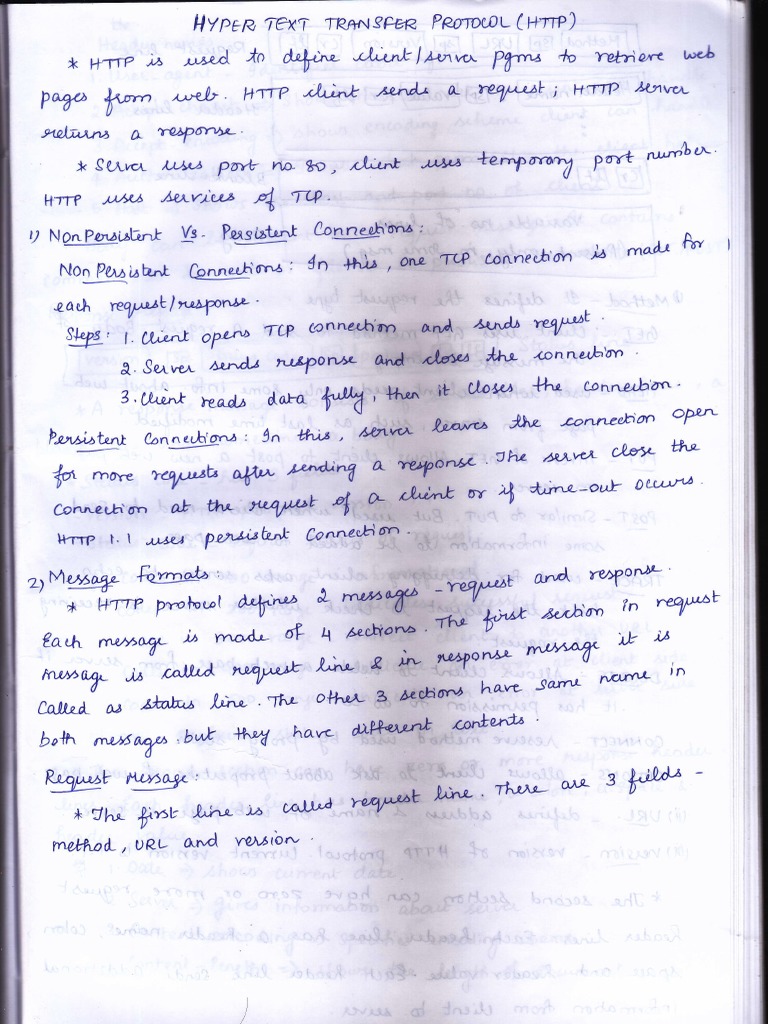 HYPER TEXT TRANSFER PROTOCOL (HTTP)
* HTTP is used to define client/server pgms to retrieve web
pages from web. HTTP client sends a request; HTTP server
returns a response.
* Server uses port no. 80, client uses temporary port number.
HTTP uses services of TCP.
1) NonPersistent Vs. Persistent Connections:
Non Persistent Connections: In this, one TCP connection is made for
each request/response.
Steps: 1. Client opens TCP connection and sends request.
2. Server sends response and closes the connection.
3. Client reads data fully, then it closes the connection.
Persistent Connections: In this, server leaves the connection open
for more requests after sending a response. The server close the
connection at the request of a client or if time-out occurs.
HTTP 1.1 uses persistent Connection.
2) Message Formats:
* HTTP protocol defines 2 messages - request and response.
Each message is made of 4 sections. The first section in request
message is called request line & in response message it is
called as status line. The other 3 sections have same name in
both messages, but they have different contents.
Request Message:
* The first line is called request line. There are 3 fields -
method, URL and version.